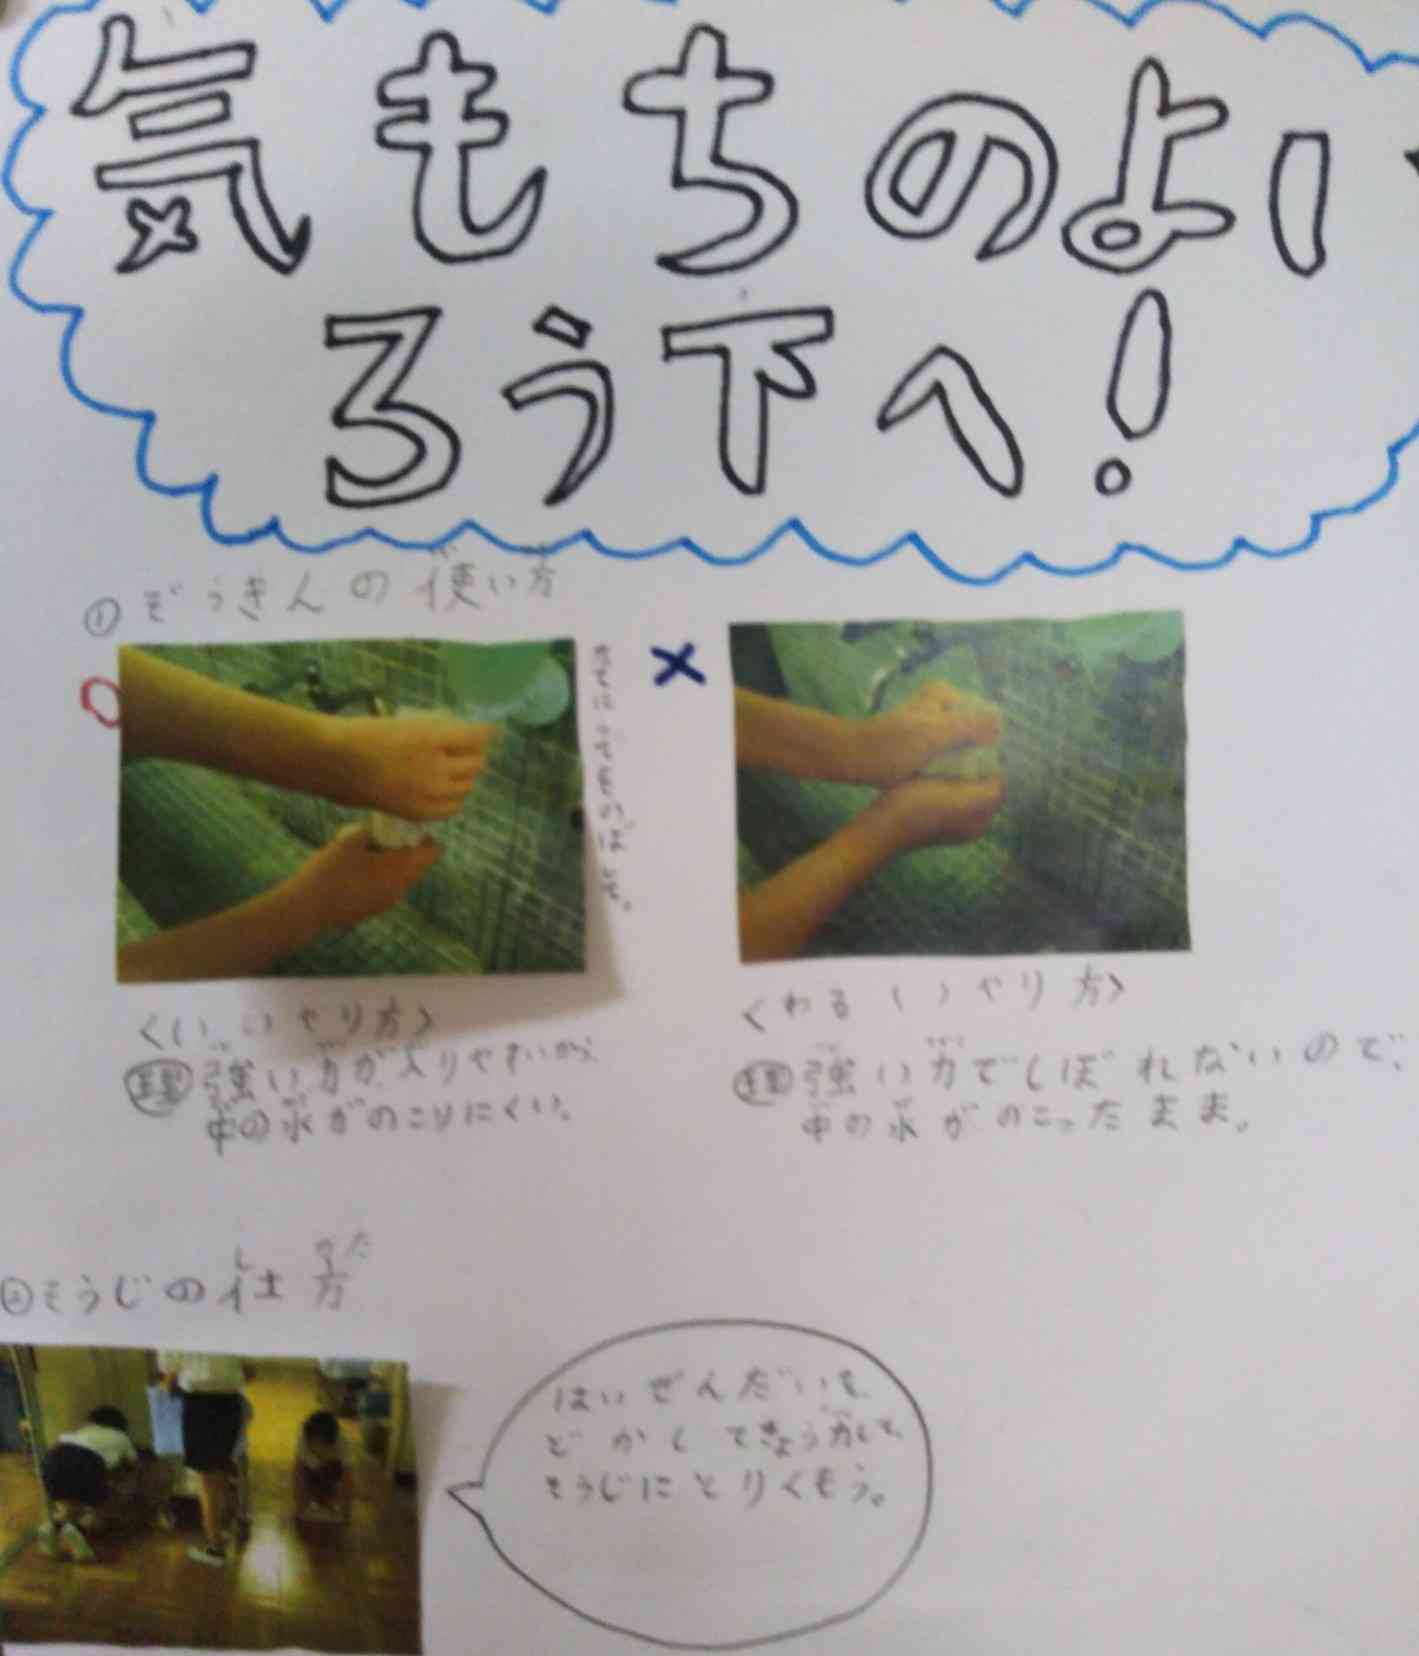 気もちのよい
ろう下へ!
①ぞうきんの使い方
○
×
<いいやり方>
理由 強い力が入りやすいから、
中の水がのこりにくい。
<わるいやり方>
理由 強い力でしぼれないので、
中の水がのこったまま。
②そうじの仕方
しかた
はいぜんだいを、
どかしてきょう力して、
そうじにとりくもう。